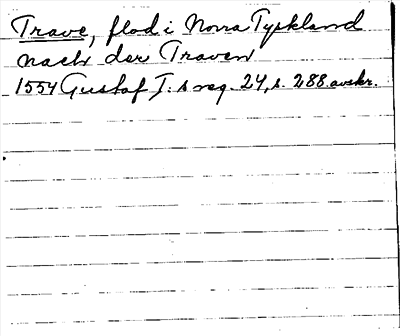 Trave, flod i Norra Tyskland
nach der Traven
1554 Gustaf I:s reg. 24, s. 288 avskr.